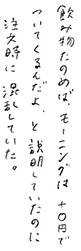 飲み物たのめば、モーニングは +0円で
ついてくるんだよ、と説明していたのに
注文時に混乱していた。